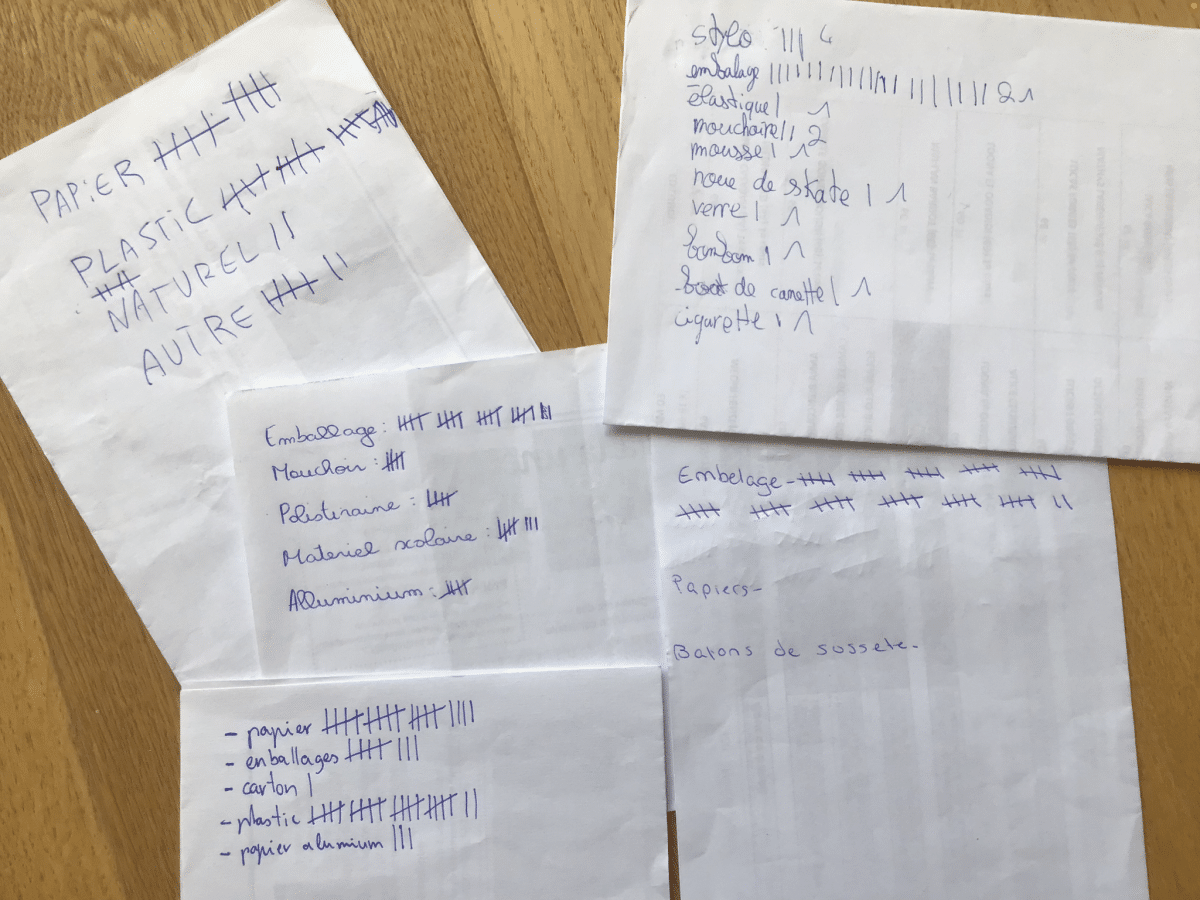 PAPiER 𝍸 𝍸
PLASTIC 𝍸 𝍸 𝍸
NATUREL ||
AUTRE 𝍸 ||
stylo ||| 4
embalage ||||||||||||||||||||| 21
élastique | 1
mouchoire || 2
mousse | 1
roue de skate | 1
verre | 1
bombom | 1
bout de canette | 1
cigarette | 1
Emballage : 𝍸 𝍸 𝍸 𝍸 |||
Mouchoir : 𝍸
Polisteraine : 𝍸
Materiel scolaire : 𝍸 |||
Alluminium : 𝍸
Embelage - 𝍸 𝍸 𝍸 𝍸 𝍸
𝍸 𝍸 𝍸 𝍸 𝍸 𝍸 ||
Papiers -
Batons de sussete -
- papier 𝍸 𝍸 𝍸 ||||
- enballages 𝍸 |||
- carton |
- plastic 𝍸 𝍸 𝍸 𝍸 ||
- papier alumium |||